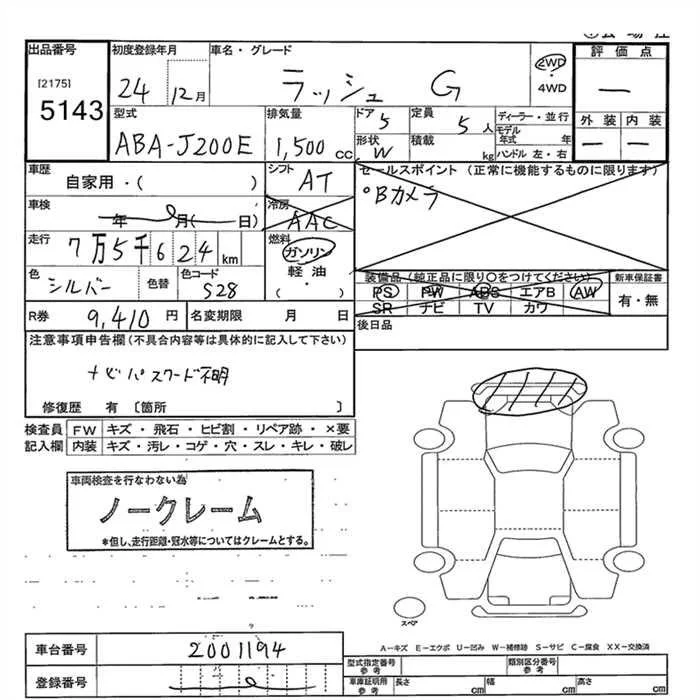 出品番号
[2175]
5143
初度登録年月
24 12月
車名・グレード
ラッシュ G
2WD
・
4WD
評価点
—
外装 内装
— —
型式
ABA-J200E
排気量
1,500 cc
ドア
5
形状
W
定員
5人
積載
kg
ディーラー・並行
モデル
年式 年
ハンドル 左・右
車歴
自家用・( )
シフト
AT
セールスポイント (正常に機能するものに限ります)
°Bカメラ
車検
年 月( 日)
冷房
AAC
走行
7万5千624 km
燃料
ガソリン
軽油・
( )
色
シルバー
色替
色コード
S28
装備品(純正品に限り○をつけてください)
PS PW ABS エアB AW
SR ナビ TV カワ
新車保証書
有・無
R券 9,410 円
名変期限 月 日
後日品
注意事項申告欄(不具合内容等は具体的に記入して下さい)
ナビパスワード不明
修復歴 有 〔箇所 〕
検査員 FW キズ・飛石・ヒビ割・リペア跡・×要
記入欄 内装 キズ・汚レ・コゲ・穴・スレ・キレ・破レ
車両検査を行なわない為
ノークレーム
*但し、走行距離・冠水等についてはクレームとする。
スペア
A-キズ E-エクボ U-凹み W-補修跡 S-サビ C-腐食 XX-交換済
車台番号 2001194
登録番号
型式指定番号
参考
類別区分番号
参考
車庫証明用
参考
長さ cm 幅 cm 高さ cm